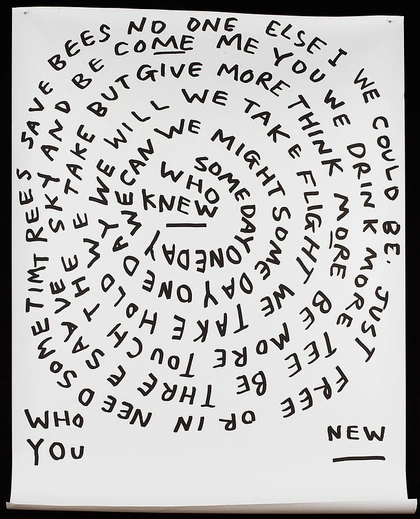 WHO
KNEW
SOMEDAY ONEDAY WE CAN WE MIGHT SOMEDAY ONE DAY WE WILL WE TAKE FLIGHT WE TAKE HOLD WHY TAKE BUT GIVE MORE THINK MORE BE MORE TOUCH THE SKY AND BE COME ME YOU WE DRINK MORE TEE BE THREE SAVE TREES SAVE BEES NO ONE ELSE I WE COULD BE. JUST FREE OR IN NEED SOMETIM
WHO
YOU
NEW